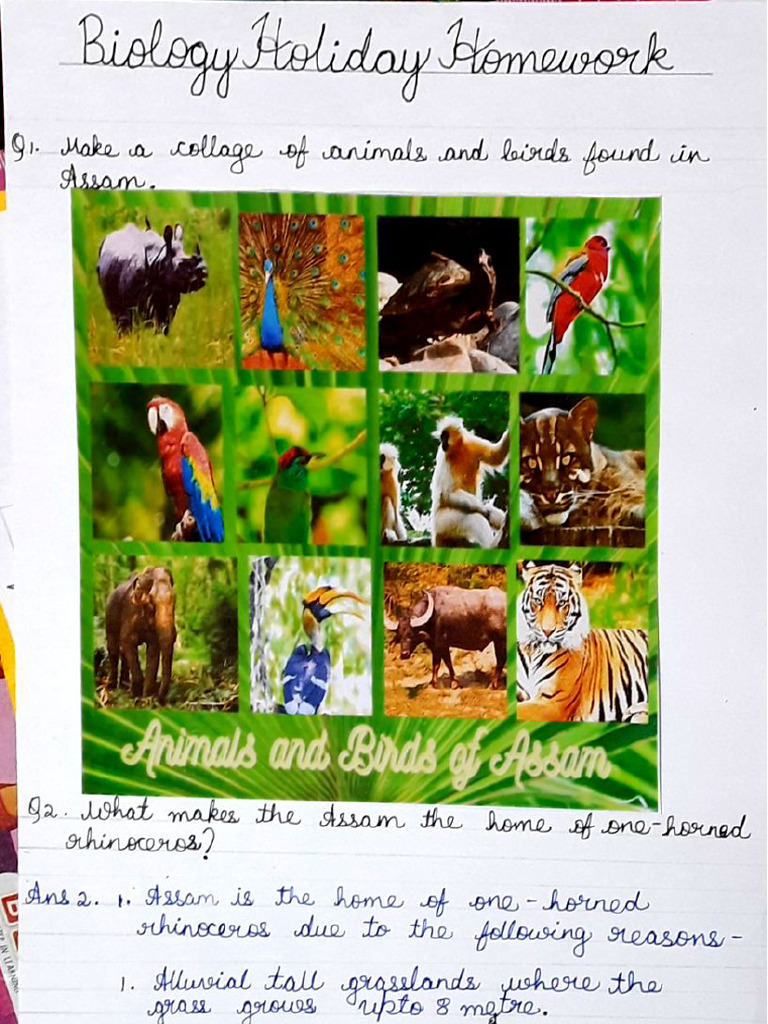 Biology Holiday Homework
Q1. Make a collage of animals and birds found in
Assam.
Animals and Birds of Assam
Q2. What makes the Assam the home of one-horned
rhinoceros?
Ans 2. 1. Assam is the home of one-horned
rhinoceros due to the following reasons-
1. Alluvial tall grasslands where the
grass grows upto 8 metre.